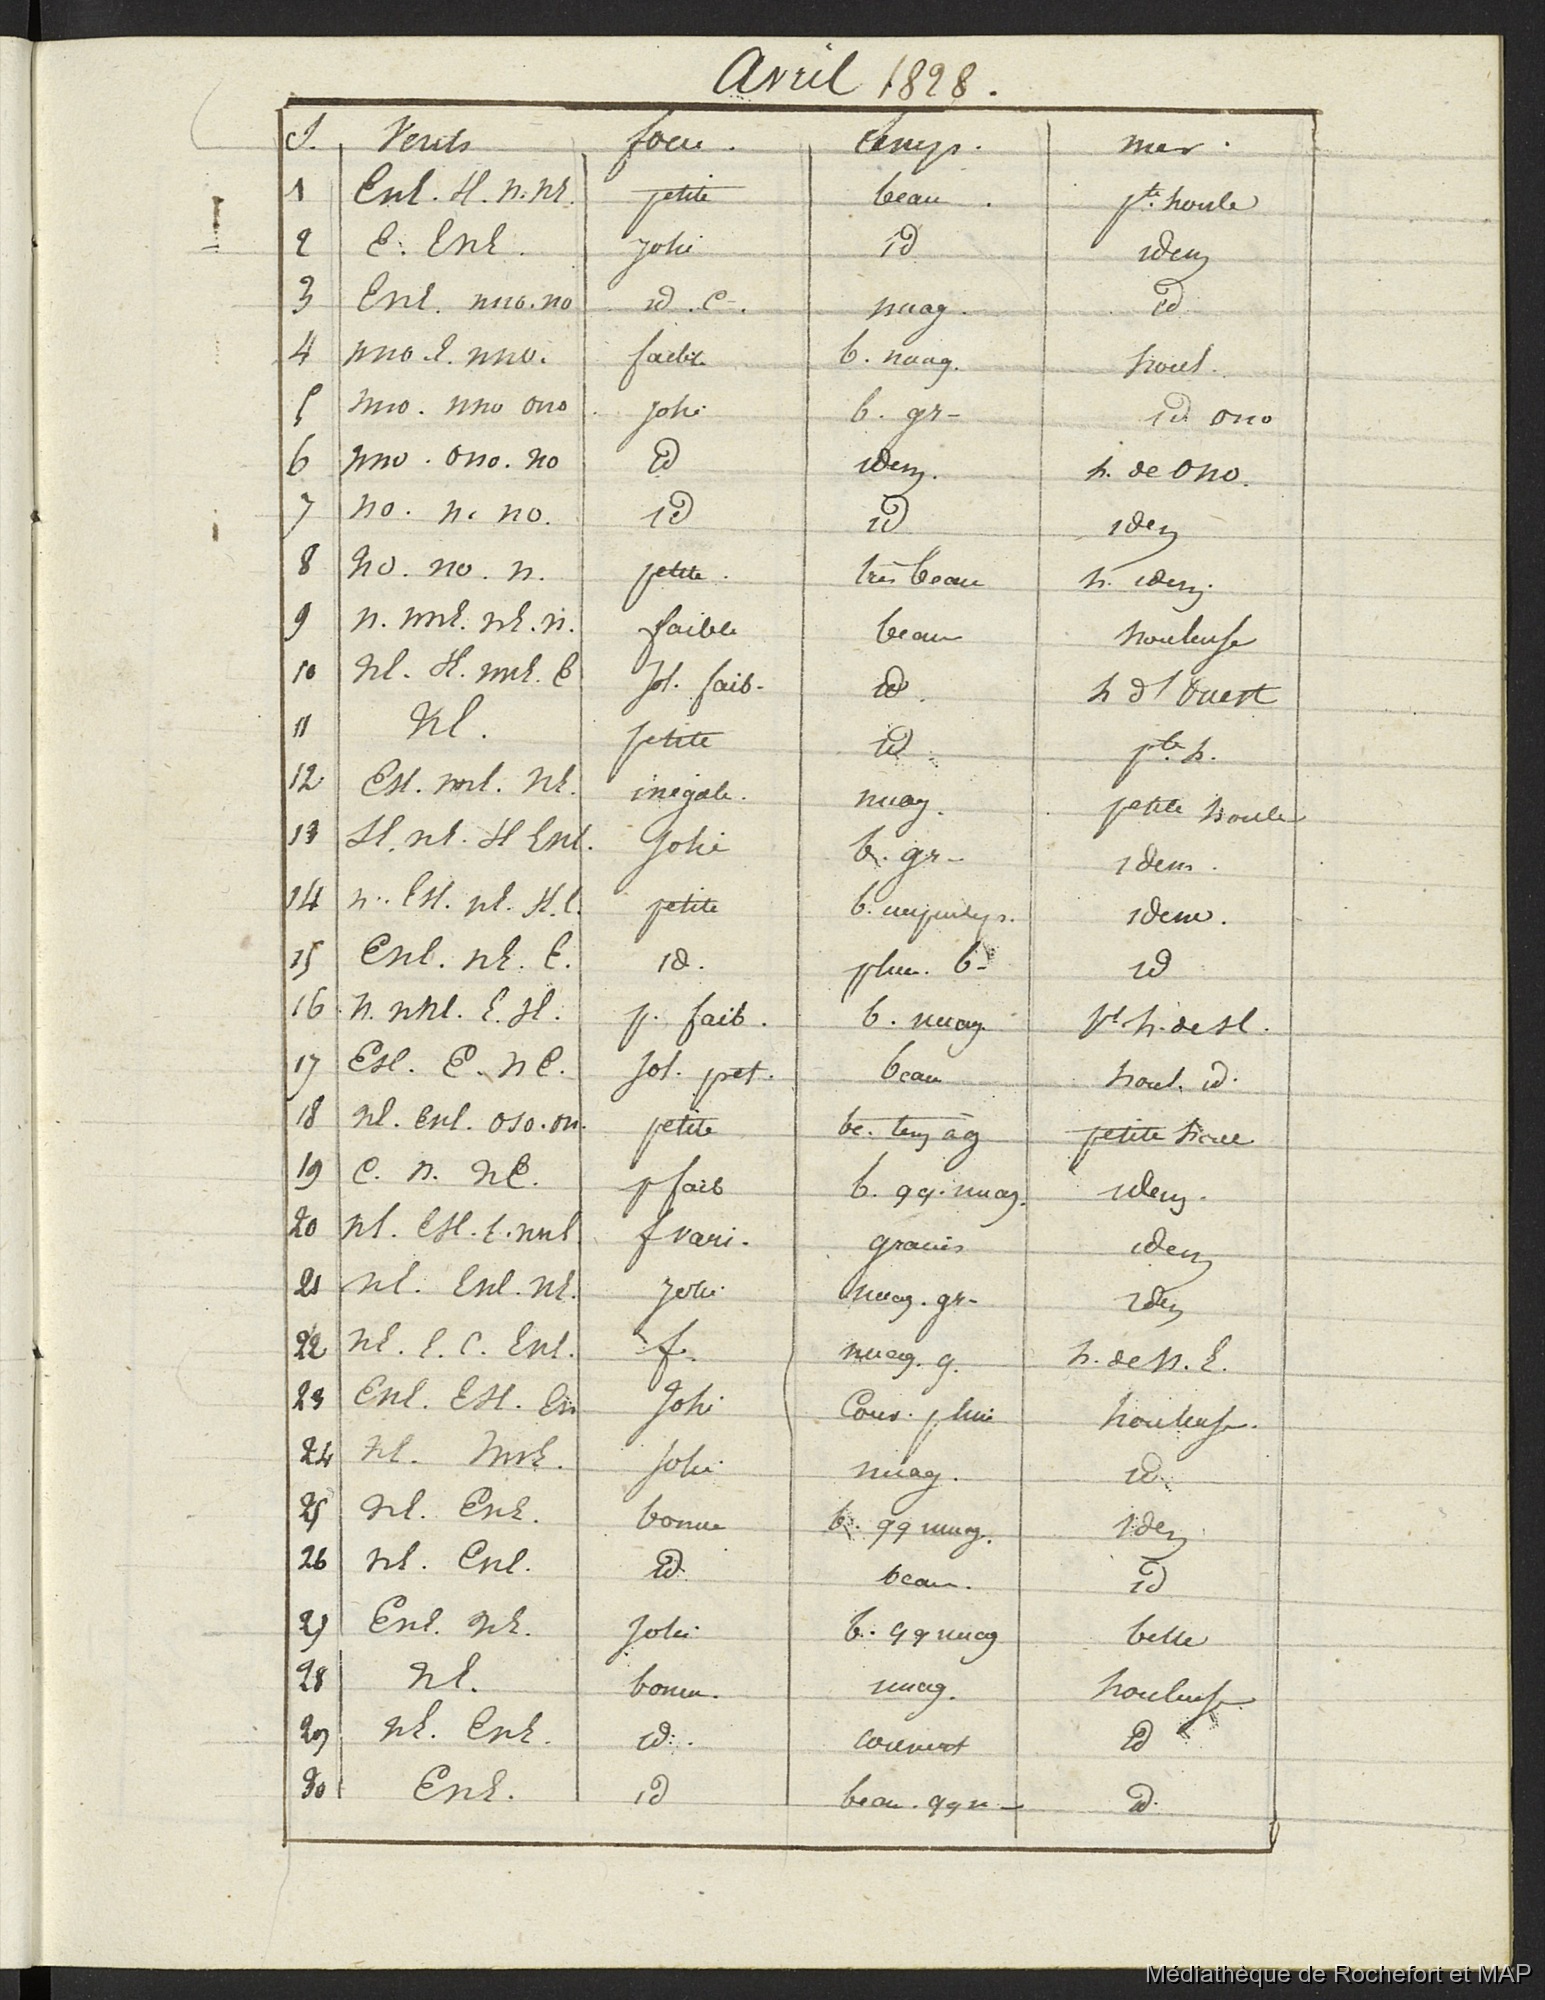 Avril 1828.
J. Vents force. temps. mer.
1 EnE. SE. n. nE. petite beau. pte. houle
2 E. EnE. jolie id idem
3 EnE. nno. no id. nuag. id
4 nno. E. nno. faible b. nuag. houl.
5 nno. nno ono jolie b. gr- id ono
6 nno. ono. no id idem. h. de ono.
7 no. n. no. id id idem
8 no. no. n. petite. très beau h. idem.
9 n. nnE. nE. n. faible beau houleuse
10 nE. SE. nnE. E jol. faib- id. h d'ouest
11 nE. petite id pte. h.
12 ESE. nnE. nE. inegale. nuag. petite houle
13 SE. nE. SE EnE. jolie b. gr- idem.
14 n. ESE. nE. SE. E. petite b. idem.
15 EnE. nE. E. id. pluv. b- id
16 n. nnE. E. SE. p. faib. b. nuag. pt. h. de SE.
17 ESE. E. nE. jol. pet. beau houl. id.
18 nE. EnE. oso. on. petite petite houle
19 E. n. nE. p faib b. qq. nuag. idem.
20 nE. ESE. E. nnE f vari. grains idem
21 nE. EnE. nE. jolie nuag. gr- idem
22 nE. E. E. EnE. f. nuag. g. h. de n. E.
23 EnE. ESE. En jolie Couv. pluie houleuse.
24 nE. nnE. jolie nuag. id.
25 nE. EnE. bonne b. qq nuag. idem
26 nE. EnE. id beau. id
27 EnE. nE. jolie b. qq nuag belle
28 nE. bonne. nuag. houleuse
29 nE. EnE. id. couvert id
30 EnE. id beau. qq n- id.
Médiathèque de Rochefort et MAP